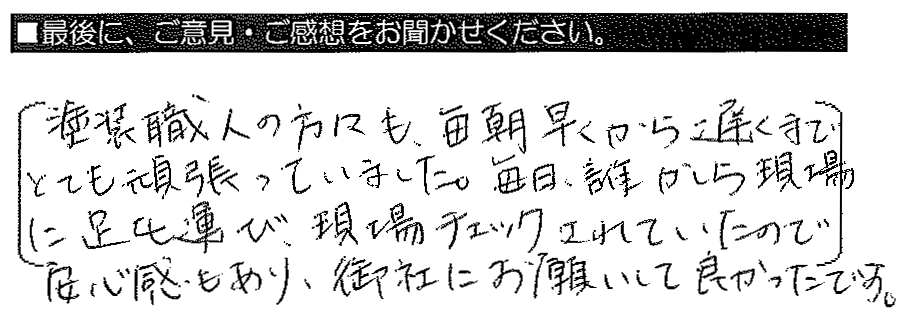 ■最後に、ご意見・ご感想をお聞かせください。
塗装職人の方々も、毎朝早くから遅くまで
とても頑張っていました。毎日、誰かしら現場
に足も運び、現場チェックされていたので
安心感もあり、御社にお願いして良かったです。